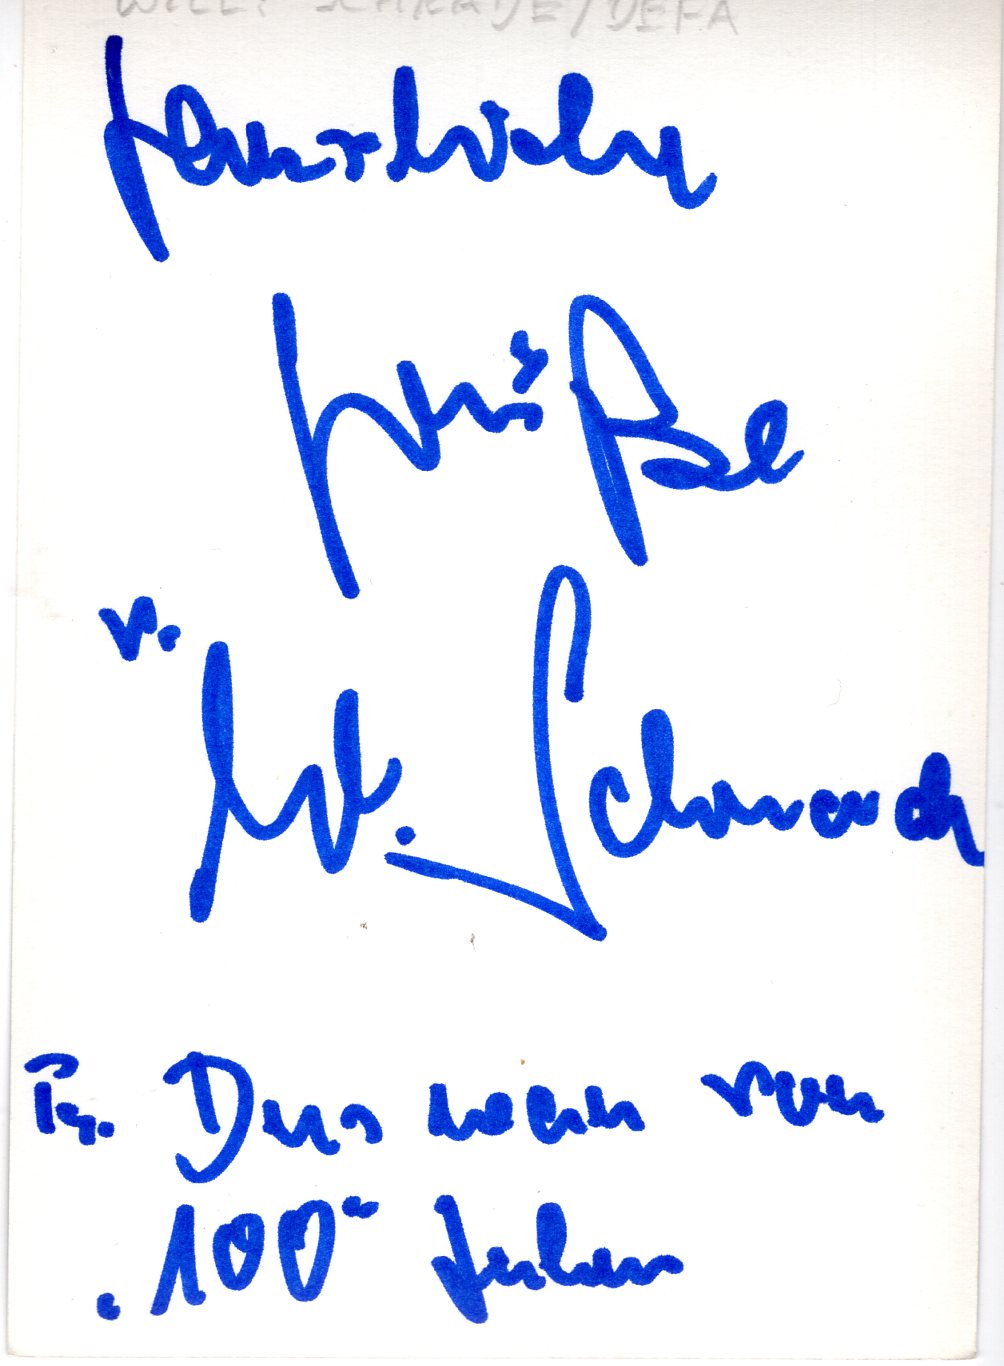 WILLY SCHRADE/DEFA
Herzliche
Grüße
v.
W. Schrade
Ps. Das war vor
"100" Jahren